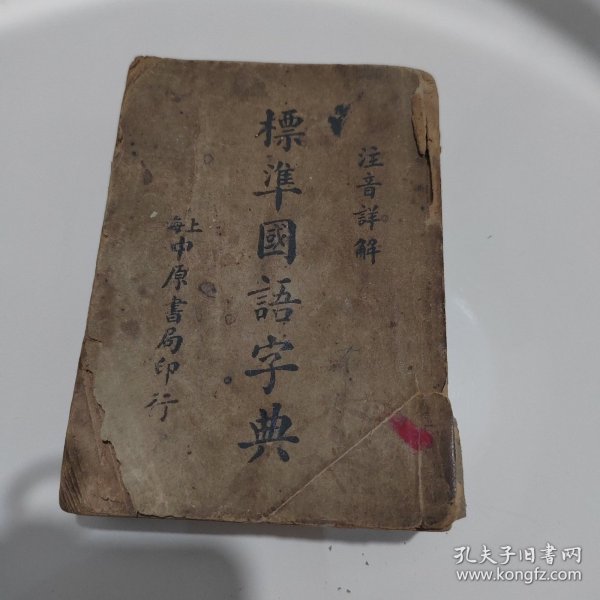 注音詳解
標準國語字典
上海中原書局印行
孔夫子旧书网
www.kongfz.com